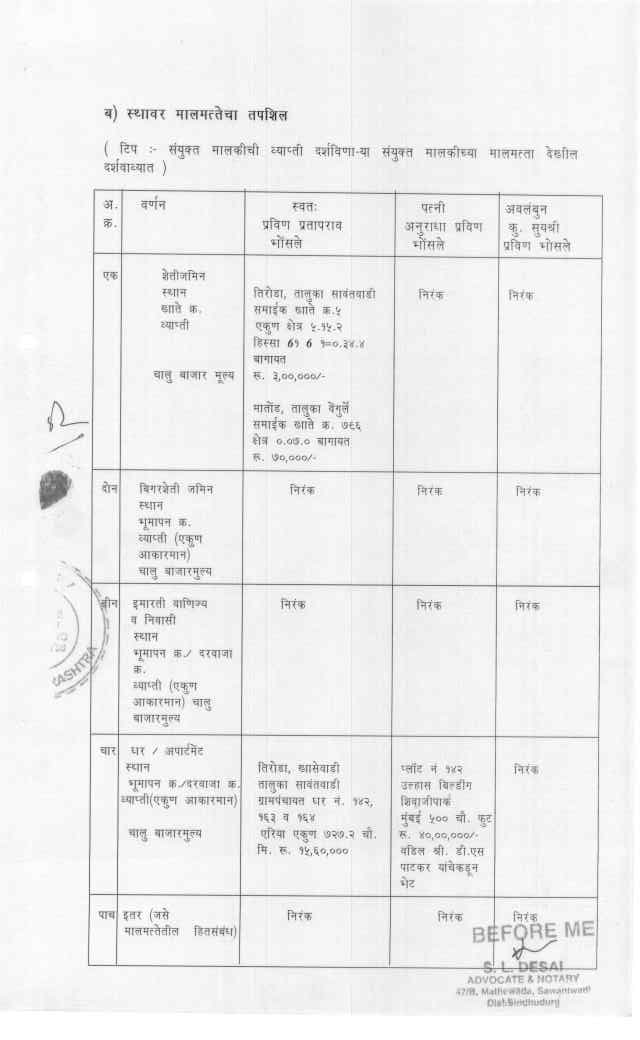 ब) स्थावर मालमत्तेचा तपशिल
( टिप :- संयुक्त मालकीची व्याप्ती दर्शविणा-या संयुक्त मालकीच्या मालमत्ता देखील
दर्शवाव्यात )
अ.
क्र.
वर्णन
स्वतः
प्रविण प्रतापराव
भोंसले
पत्नी
अनुराधा प्रविण
भोंसले
अवलंबुन
कु. सुयश्री
प्रविण भोसले
एक
शेतीजमिन
स्थान
खाते क्र.
व्याप्ती
चालु बाजार मूल्य
तिरोडा, तालुका सावंतवाडी
समाईक खाते क्र.५
एकुण क्षेत्र ५.१५.२
हिस्सा 6१ 6 १=०.३४.४
बागायत
रू. ३,००,०००/-
मातोंड, तालुका वेंगुर्ले
समाईक खाते क्र. ७९६
क्षेत्र ०.०७.० बागायत
रू. ७०,०००/-
निरंक
निरंक
दोन
बिगरशेती जमिन
स्थान
भूमापन क्र.
व्याप्ती (एकुण
आकारमान)
चालु बाजारमुल्य
निरंक
निरंक
निरंक
तीन
इमारती वाणिज्य
व निवासी
स्थान
भूमापन क्र./ दरवाजा
क्र.
व्याप्ती (एकुण
आकारमान) चालु
बाजारमुल्य
निरंक
निरंक
निरंक
चार
घर / अपार्टमेंट
स्थान
भूमापन क्र./दरवाजा क्र.
व्याप्ती(एकुण आकारमान)
चालु बाजारमुल्य
तिरोडा, खासेवाडी
तालुका सावंतवाडी
ग्रामपंचायत घर नं. १४२,
१६३ व १६४
एरिया एकुण ७२७.२ चौ.
मि. रू. १५,६०,०००
प्लॉट नं १४२
उल्हास बिल्डींग
शिवाजीपार्क
मुंबई ५०० चौ. फुट
रू. ४०,००,०००/-
वडिल श्री. डी.एस
पाटकर यांचेकडून
भेट
निरंक
पाच
इतर (जसे
मालमत्तेतील हितसंबंध)
निरंक
निरंक
निरंक
BEFORE ME
S. L. DESAI
ADVOCATE & NOTARY
47/B, Mathewada, Sawantwadi
Dist-Sindhudurg
ASHTRA